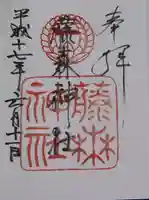 奉拝
藤森神社
藤森
神社
平成十七年六月十一日